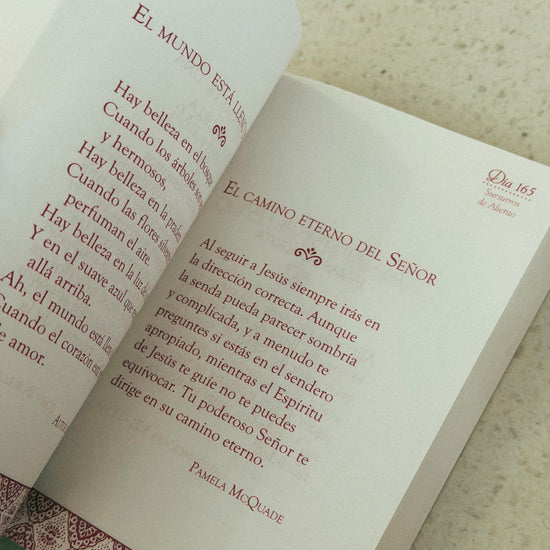 EL MUNDO ESTÁ
Hay belleza en el bosque
Cuando los árboles
y hermosos,
Hay belleza en la
Cuando las flores
perfuman el aire.
Hay belleza en la luz
Y en el suave azul que
allá arriba.
Ah, el mundo está
Cuando el corazón
de amor.
Día 165
Susurros
de Aliento
EL CAMINO ETERNO DEL SEÑOR
Al seguir a Jesús siempre irás en
la dirección correcta. Aunque
la senda pueda parecer sombría
y complicada, y a menudo te
preguntes si estás en el sendero
apropiado, mientras el Espíritu
de Jesús te guíe no te puedes
equivocar. Tu poderoso Señor te
dirige en su camino eterno.
PAMELA MCQUADE